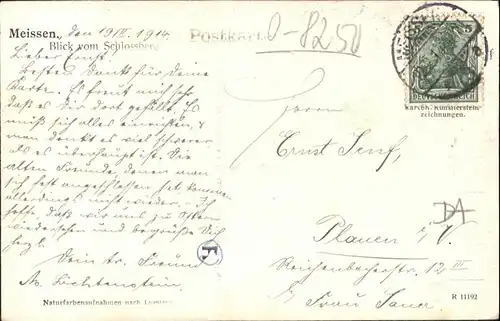 Meissen, den 19/II. 1914
Blick vom Schlossberg
Lieber Ernst.
Besten Dank für Deine
Karte. Es freut mich sehr
daß es Dir dort gefällt. Es
muß sich alles einrichten, u
man denkt es viel schwerer
als es überhaupt ist. Die
alten Freunde, denen man
sich fest angeschlossen hat kommen
allerdings nicht wieder. - Ich
hoffe daß wir uns zu Ostern
wiedersehen und begrüße Dich
herzl.
Dein tr. Freund
A. Lichtenstein.
Naturfarbenaufnahmen nach
Postkarte
D-8250
5
DEUTSCHES REICH
Künstlerstein-
zeichnungen.
Herrn
Ernst Senf,
Plauen i/V.
Reichenbacherstr. 12 III
b/ Frau Sauer
DA
R 11192